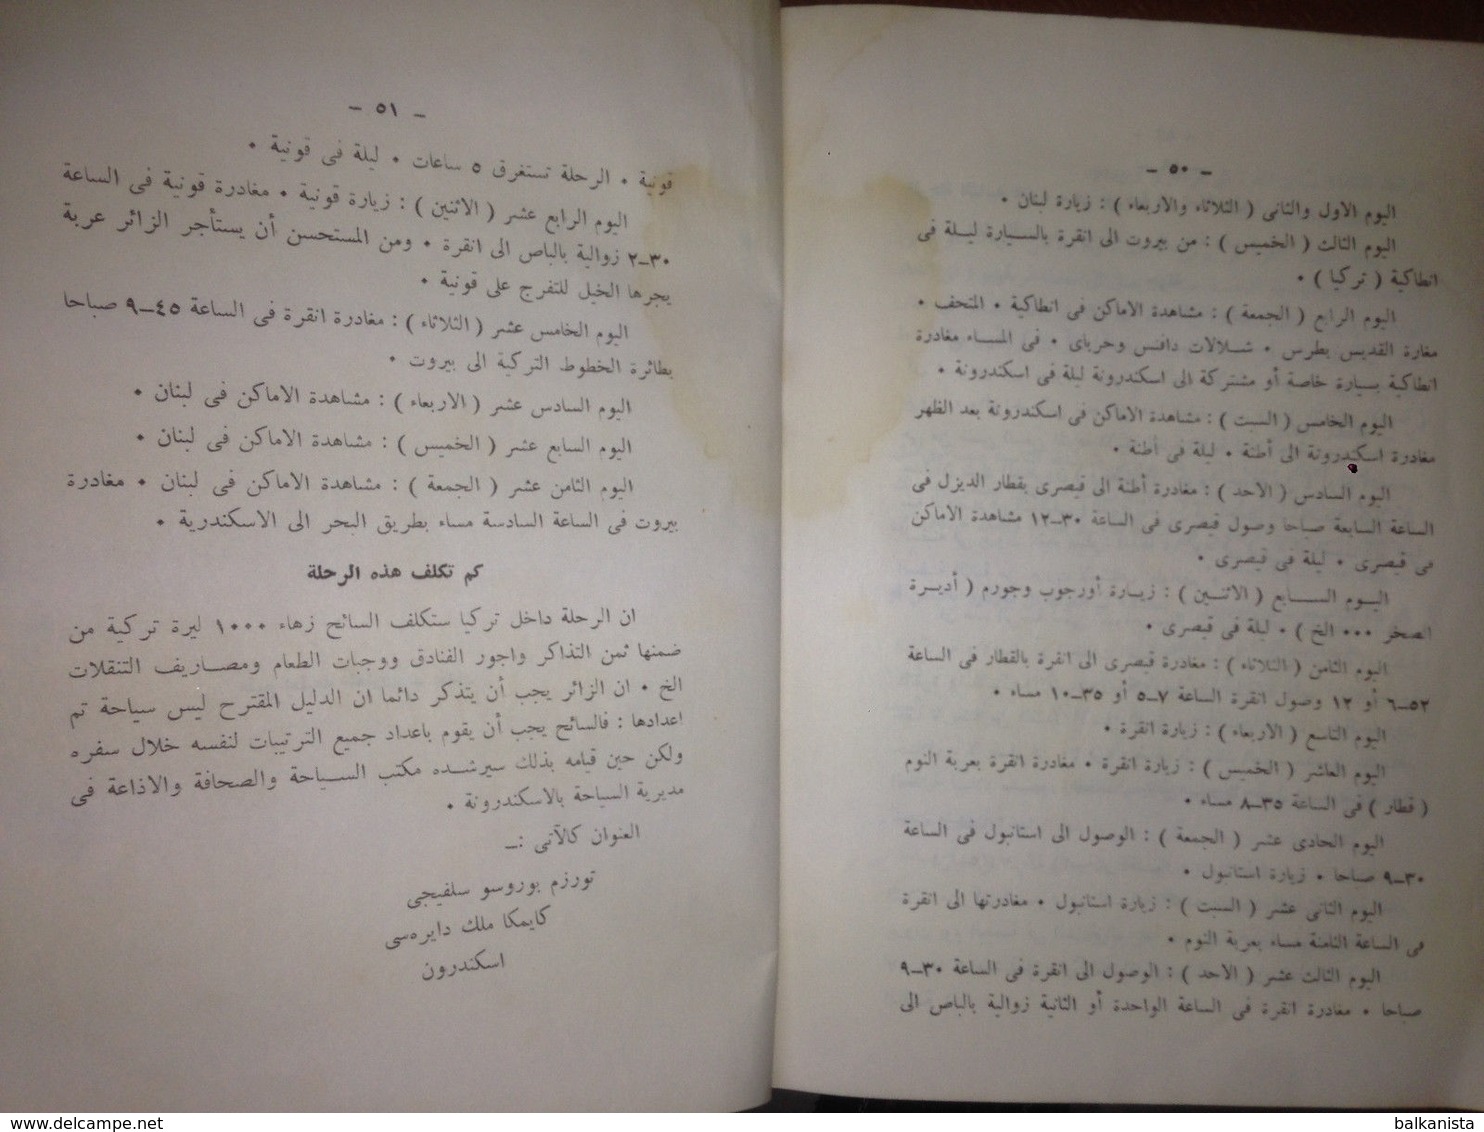 - ٥٠ -
اليوم الاول والثانى ( الثلاثاء والاربعاء ) : زيارة لبنان •
اليوم الثالث ( الخميس ) : من بيروت الى انقرة بالسيارة ليلة فى
انطاكية ( تركيا ) •
اليوم الرابع ( الجمعة ) : مشاهدة الاماكن فى انطاكية • المتحف •
مغارة القديس بطرس • شلالات دافنس وحرباى • فى المساء مغادرة
انطاكية بسيارة خاصة أو مشتركة الى اسكندرونة ليلة فى اسكندرونة •
اليوم الخامس ( السبت ) : مشاهدة الاماكن فى اسكندرونة بعد الظهر
مغادرة اسكندرونة الى أطنة • ليلة فى أطنة •
اليوم السادس ( الاحد ) : مغادرة أطنة الى قيصرى بقطار الديزل فى
الساعة السابعة صباحا وصول قيصرى فى الساعة ٣٠–١٢ مشاهدة الاماكن
فى قيصرى • ليلة فى قيصرى •
اليوم السابع ( الاثنين ) : زيارة أورجوب وجورم ( أديرة
الصخر ٠٠٠ الخ ) • ليلة فى قيصرى •
اليوم الثامن ( الثلاثاء ) : مغادرة قيصرى الى انقرة بالقطار فى الساعة
٥٢–٦ أو ١٢ وصول انقرة الساعة ٧–٥ أو ٣٥–١٠ مساء •
اليوم التاسع ( الاربعاء ) : زيارة انقرة •
اليوم العاشر ( الخميس ) : زيارة انقرة • مغادرة انقرة بعربة النوم
( قطار ) فى الساعة ٣٥–٨ مساء •
اليوم الحادى عشر ( الجمعة ) : الوصول الى استانبول فى الساعة
٣٠–٩ صباحا • زيارة استانبول •
اليوم الثانى عشر ( السبت ) : زيارة استانبول • مغادرتها الى انقرة
فى الساعة الثامنة مساء بعربة النوم •
اليوم الثالث عشر ( الاحد ) : الوصول الى انقرة فى الساعة ٣٠–٩
صباحا • مغادرة انقرة فى الساعة الواحدة أو الثانية زوالية بالباص الى
- ٥١ -
قونية • الرحلة تستغرق ٥ ساعات • ليلة فى قونية •
اليوم الرابع عشر ( الاثنين ) : زيارة قونية • مغادرة قونية فى الساعة
٣٠–٢ زوالية بالباص الى انقرة • ومن المستحسن أن يستأجر الزائر عربة
يجرها الخيل للتفرج على قونية •
اليوم الخامس عشر ( الثلاثاء ) : مغادرة انقرة فى الساعة ٤٥–٩ صباحا
بطائرة الخطوط التركية الى بيروت •
اليوم السادس عشر ( الاربعاء ) : مشاهدة الاماكن فى لبنان •
اليوم السابع عشر ( الخميس ) : مشاهدة الاماكن فى لبنان •
اليوم الثامن عشر ( الجمعة ) : مشاهدة الاماكن فى لبنان • مغادرة
بيروت فى الساعة السادسة مساء بطريق البحر الى الاسكندرية •
كم تكلف هذه الرحلة
ان الرحلة داخل تركيا ستكلف السائح زهاء ١٠٠٠ ليرة تركية من
ضمنها ثمن التذاكر واجور الفنادق ووجبات الطعام ومصاريف التنقلات
الخ • ان الزائر يجب أن يتذكر دائما ان الدليل المقترح ليس سياحة تم
اعدادها : فالسائح يجب أن يقوم باعداد جميع الترتيبات لنفسه خلال سفره
ولكن حين قيامه بذلك سيرشده مكتب السياحة والصحافة والاذاعة فى
مديرية السياحة بالاسكندرونة •
العنوان كالآتى :–
تورزم بوروسو سلفيجى
كايمكا ملك دايرەسى
اسكندرون
balkanista